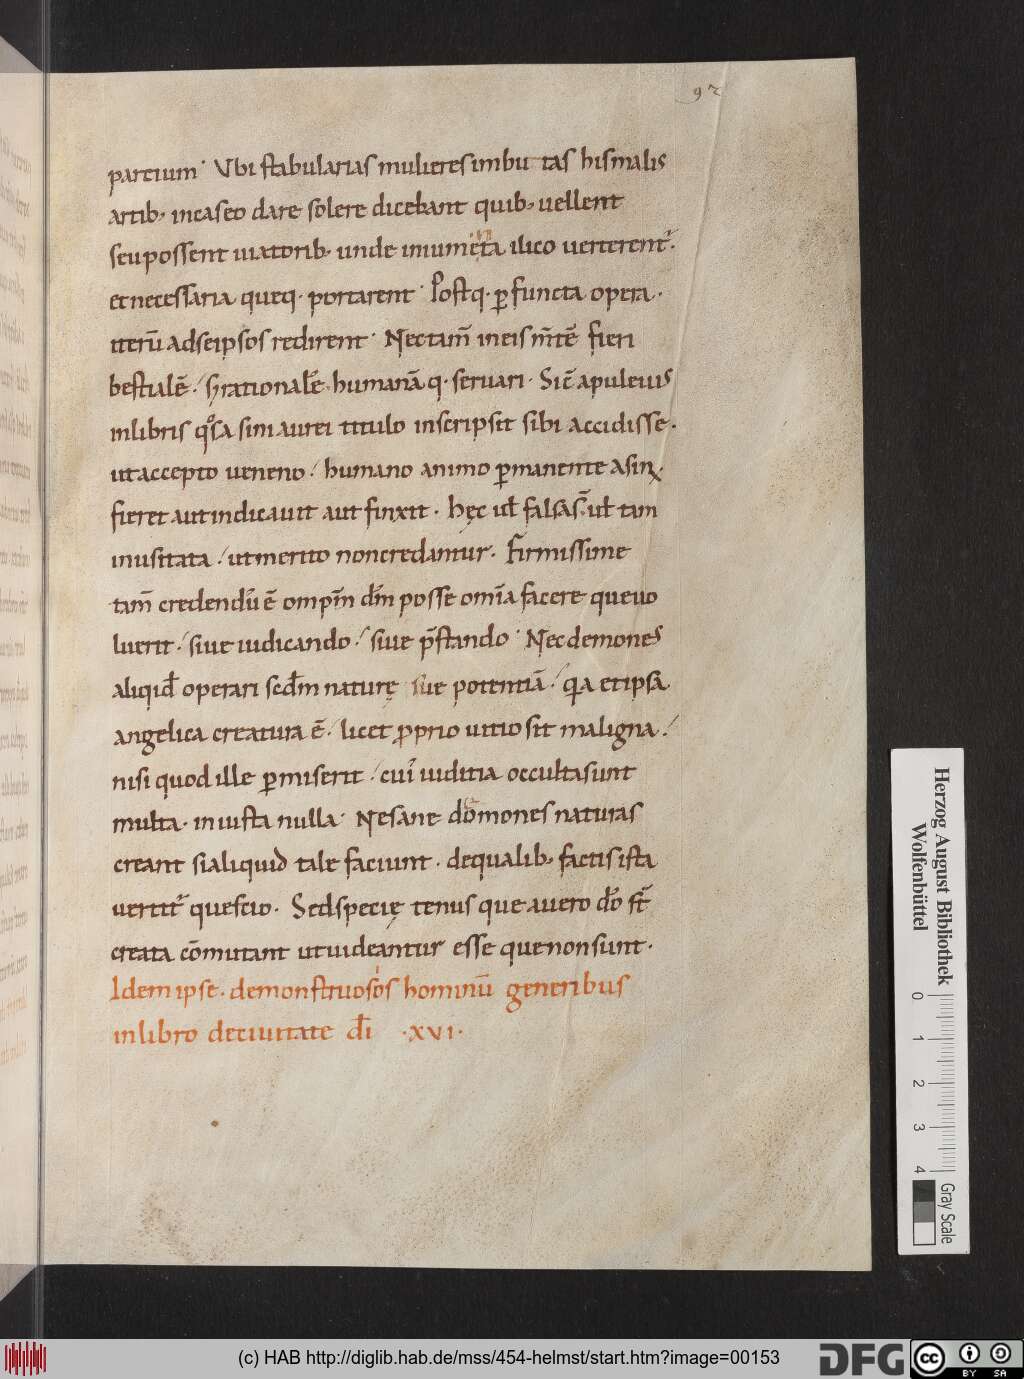 92
partium· Vbi stabularias mulieres imbu tas his malis
artib; in caseo dare solere dicebant quib; uellent
seu possent uiatorib; unde iniumēta ilico uerterent᷑·
et necessaria queq· portarent· Postq· ꝑfuncta opera·
iterū ad se ipsos redirent· Nec tam̄ in eis m̄tē fieri
bestialē· / rationalē· humanā q· seruari· Sic̄ apuleius
in libris qͦs asini aurei titulo inscripsit sibi accidisse·
ut accepto ueneno·/ humano animo ꝑmanente asinꝰ·
fieret aut indicauit aut finxit· hęc uł falsa s̄ uł tam
inusitata·/ ut merito non credantur· Firmissime
tam̄ credendū ē omp̄m dm̄ posse om̄ia facere que uo
luerit·/ siue iudicando·/ siue p̄stando· Nec demones
aliqid̄ operari scd̄m naturę sue potentiā·/ qa et ipsa
angelica creatura ē·/ licet ꝓprio uitio sit maligna·/
nisi quod ille ꝑmiserit·/ cuiꝰ iuditia occulta sunt
multa· iniusta nulla· Ne sane domones naturas
creant si aliquid tale faciunt· de qualib; factis ista
uertit᷑ questio· Sed specię tenus que a uero dō st̄
creata cōmutant ut uideantur esse que non sunt·
Idem ipse· de monstruosos hominū generibus
in libro de ciuitate dī ·xvi·
Herzog August Bibliothek
Wolfenbüttel
0 1 2 3 4
Gray Scale
(c) HAB http://diglib.hab.de/mss/454-helmst/start.htm?image=00153
DFG
cc BY SA